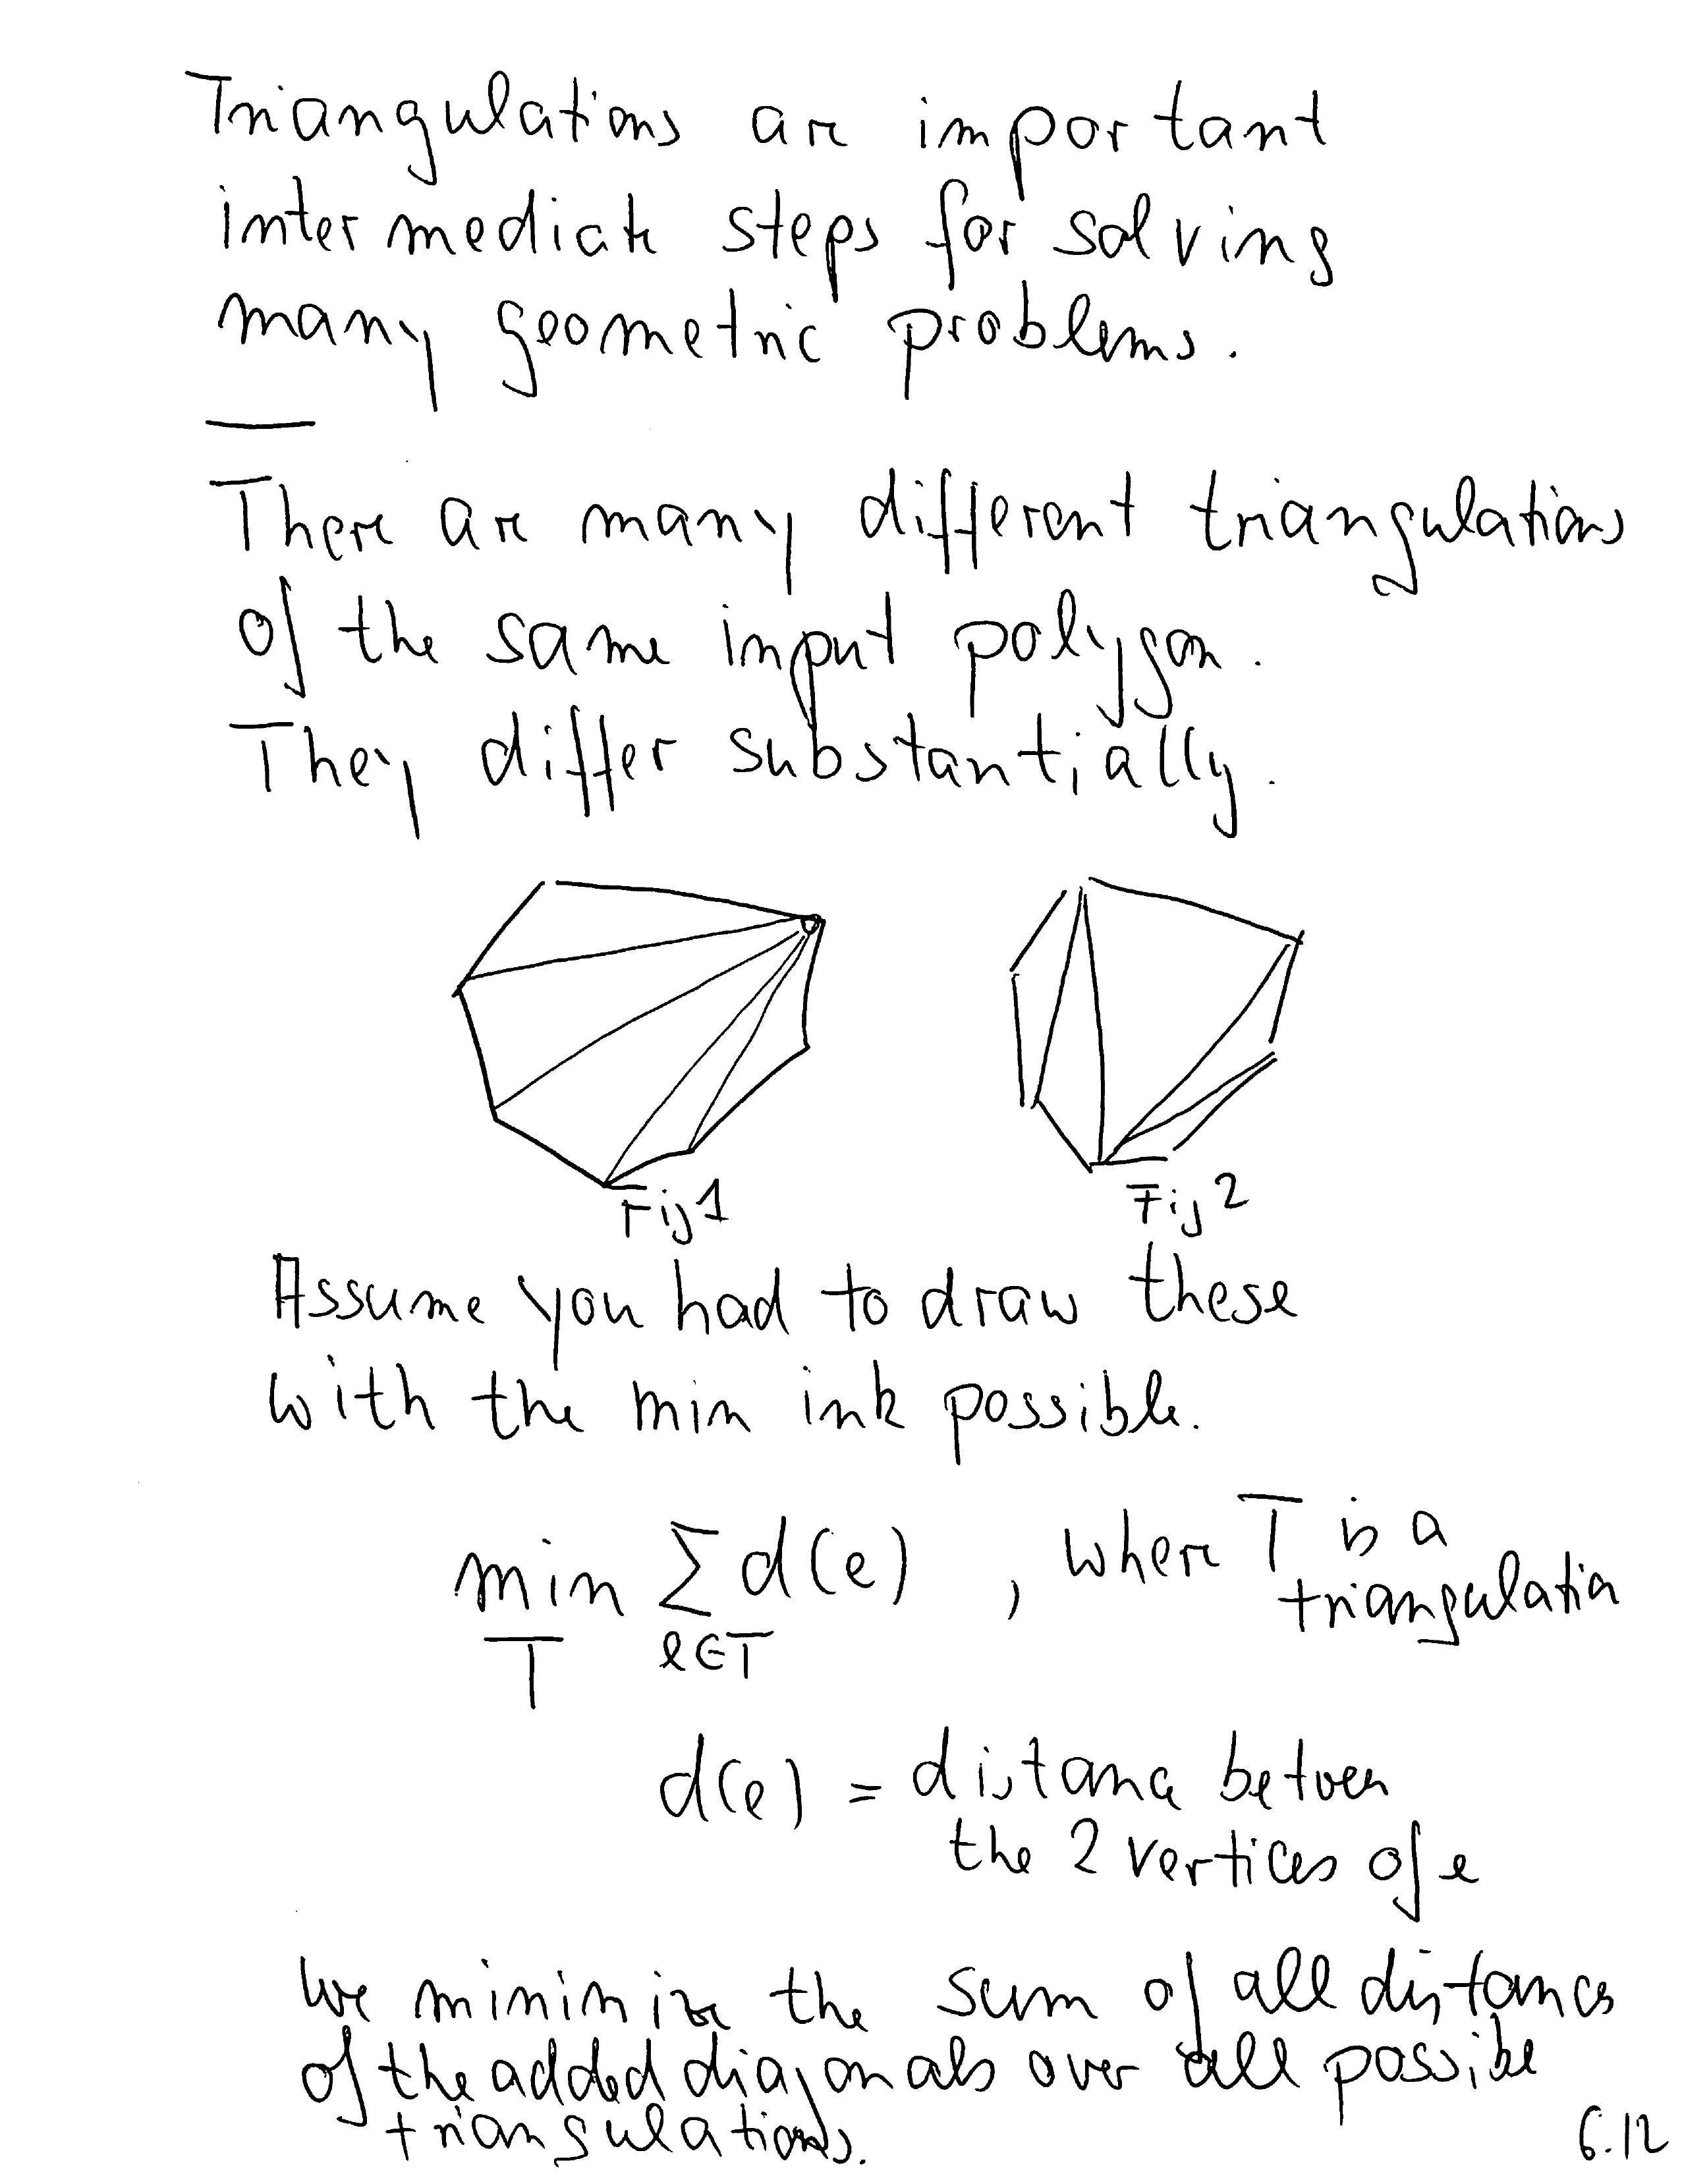 Triangulations are important
intermediate steps for solving
many geometric problems.
There are many different triangulations
of the same input polygon.
They differ substantially.
Fig 1
Fig 2
Assume you had to draw these
with the min ink possible.
min Σ d(e) , where T is a
T e∈T triangulation
d(e) = distance between
the 2 vertices of e
We minimize the sum of all distances
of the added diagonals over all possible
triangulations.
6.12